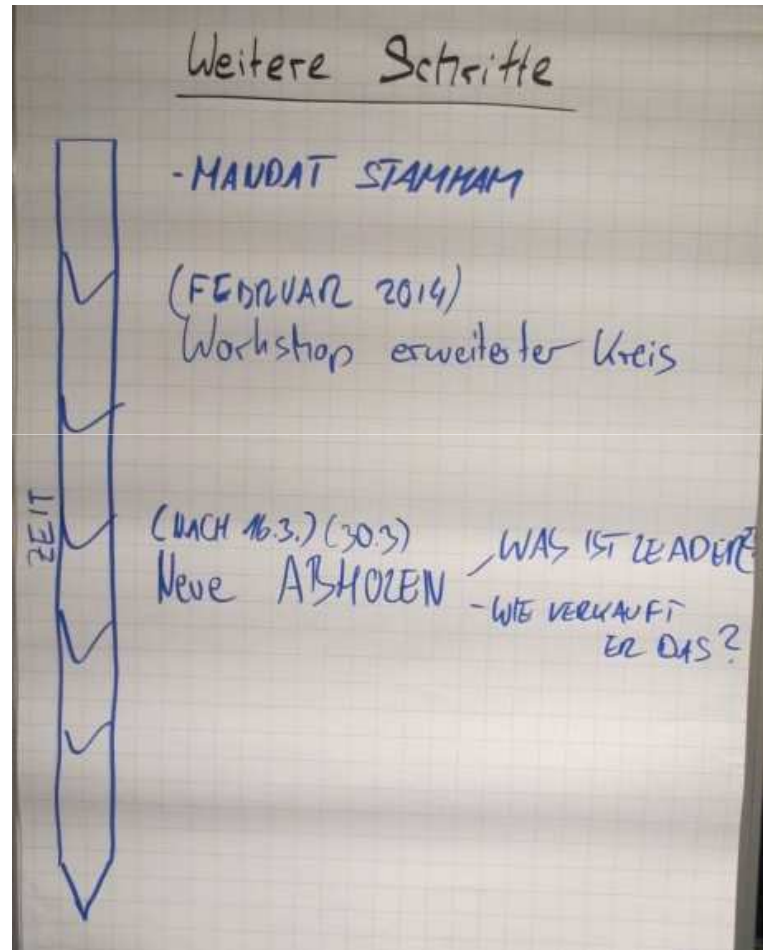 Weitere Schritte
- MANDAT STAMHAM
(FEBRUAR 2014)
Workshop erweiterter Kreis
ZEIT
(NACH 16.3.) (30.3)
Neue ABHOLEN
WAS IST LEADER?
- WIE VERKAUFT
ER DAS?